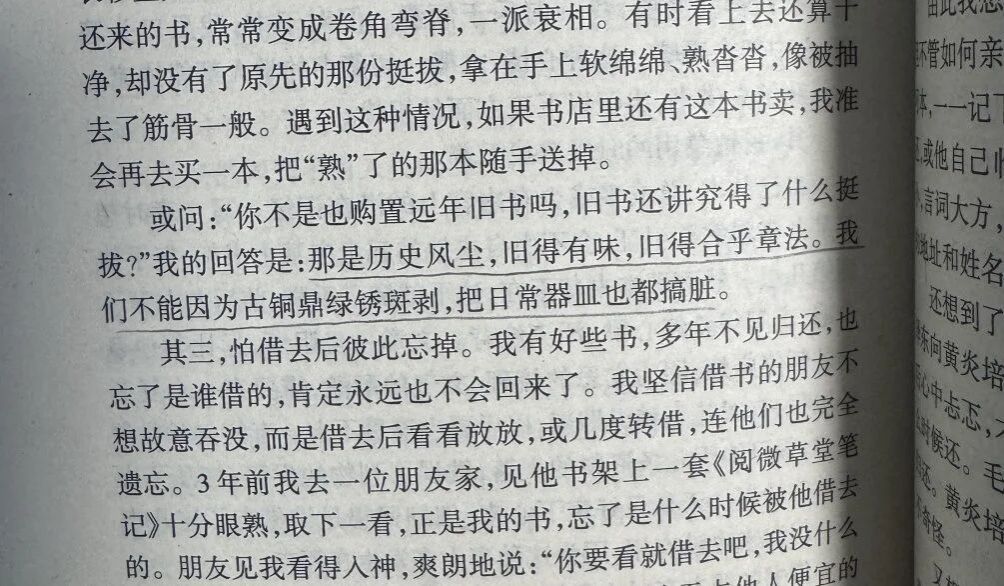 还来的书，常常变成卷角弯脊，一派衰相。有时看上去还算干
净，却没有了原先的那份挺拔，拿在手上软绵绵、熟沓沓，像被抽
去了筋骨一般。遇到这种情况，如果书店里还有这本书卖，我准
会再去买一本，把“熟”了的那本随手送掉。
或问：“你不是也购置远年旧书吗，旧书还讲究得了什么挺
拔？”我的回答是：那是历史风尘，旧得有味，旧得合乎章法。我
们不能因为古铜鼎绿锈斑剥，把日常器皿也都搞脏。
其三，怕借去后彼此忘掉。我有好些书，多年不见归还，也
忘了是谁借的，肯定永远也不会回来了。我坚信借书的朋友不
想故意吞没，而是借去后看看放放，或几度转借，连他们也完全
遗忘。3年前我去一位朋友家，见他书架上一套《阅微草堂笔
记》十分眼熟，取下一看，正是我的书，忘了是什么时候被他借去
的。朋友见我看得入神，爽朗地说：“你要看就借去吧，我没什么
他人便宜的
由此我想
不管如何亲
本，一一记下
或他自己
言词大方，
地址和姓名
还想到了
东向黄炎培
心中忐忑，
时候还。毛
还。黄炎培
奇怪。